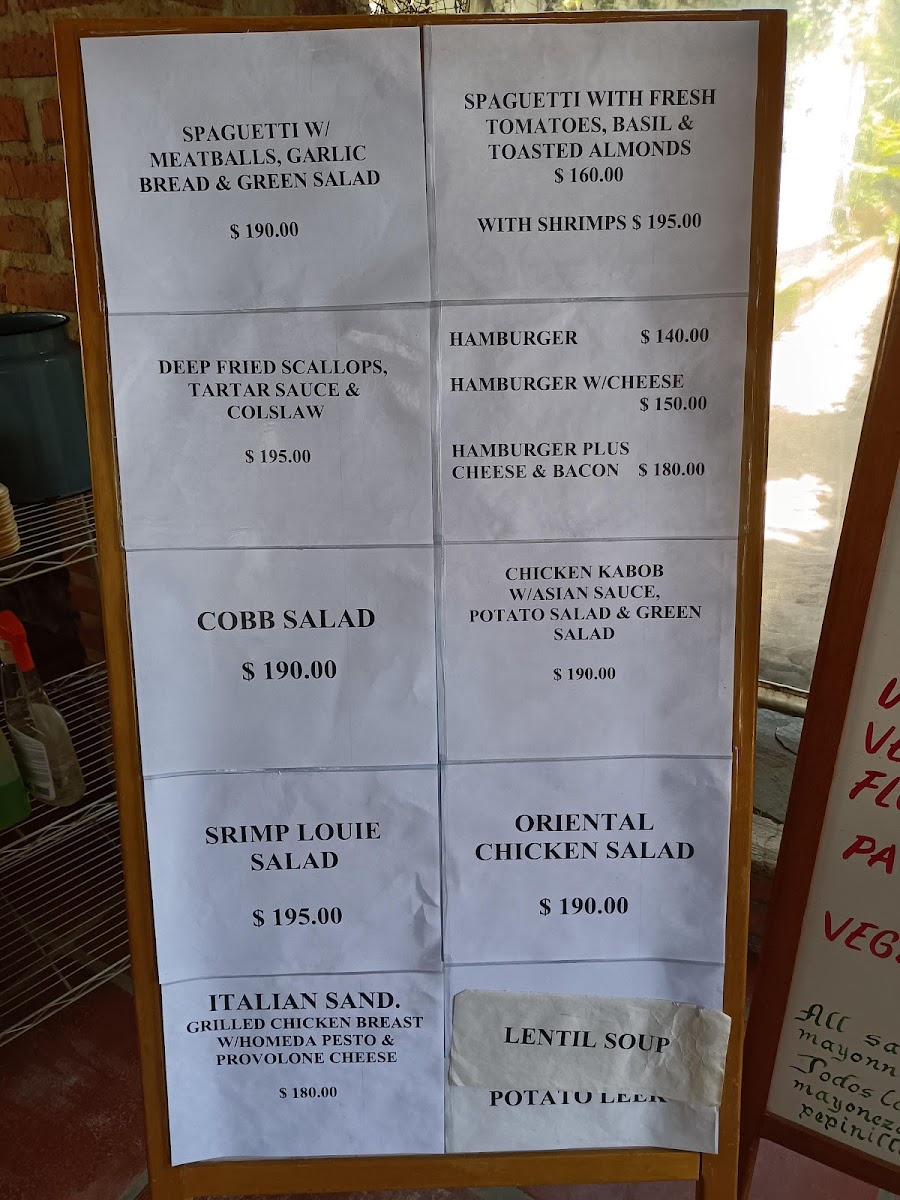 SPAGUETTI W/
MEATBALLS, GARLIC
BREAD & GREEN SALAD
$ 190.00
SPAGUETTI WITH FRESH
TOMATOES, BASIL &
TOASTED ALMONDS
$ 160.00
WITH SHRIMPS $ 195.00
DEEP FRIED SCALLOPS,
TARTAR SAUCE &
COLSLAW
$ 195.00
HAMBURGER $ 140.00
HAMBURGER W/CHEESE
$ 150.00
HAMBURGER PLUS
CHEESE & BACON $ 180.00
COBB SALAD
$ 190.00
CHICKEN KABOB
W/ASIAN SAUCE,
POTATO SALAD & GREEN
SALAD
$ 190.00
SRIMP LOUIE
SALAD
$ 195.00
ORIENTAL
CHICKEN SALAD
$ 190.00
ITALIAN SAND.
GRILLED CHICKEN BREAST
W/HOMEDA PESTO &
PROVOLONE CHEESE
$ 180.00
LENTIL SOUP
POTATO LEEK
All
mayonn
Todos